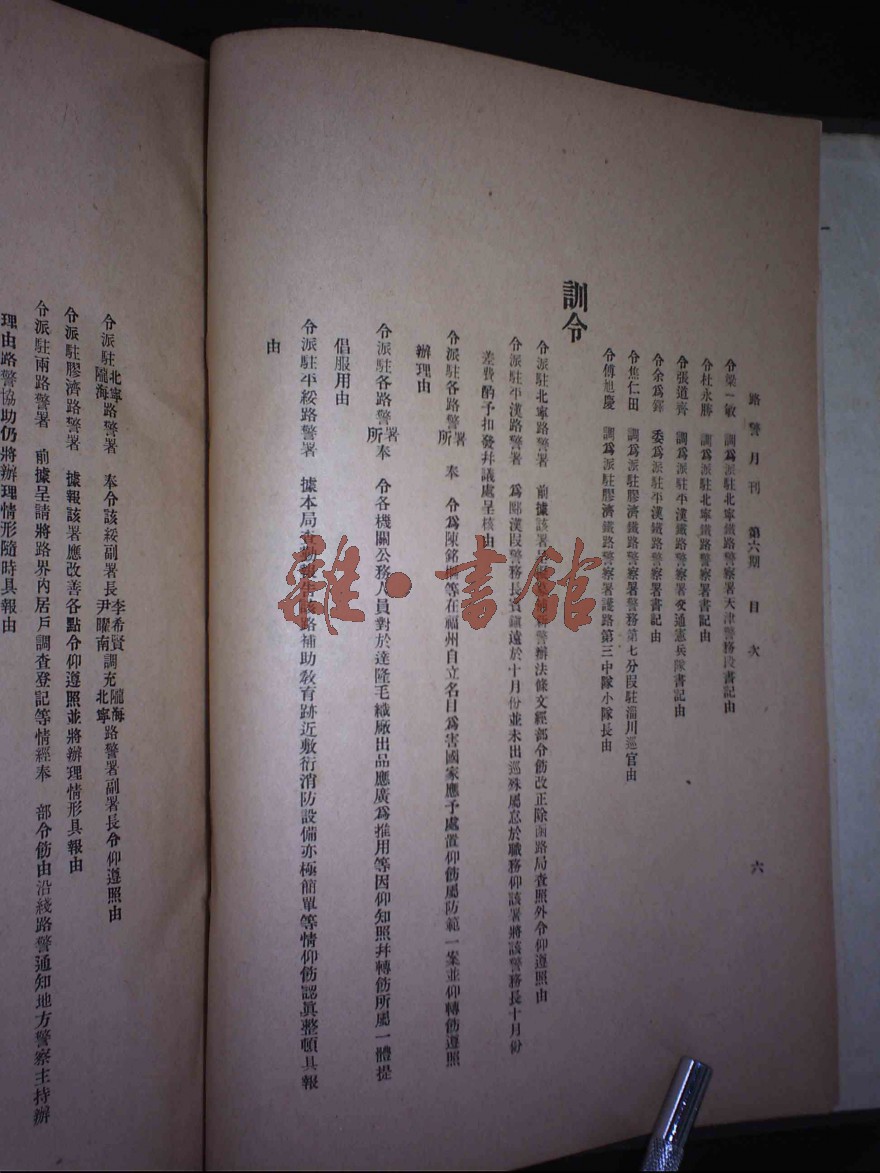 路警月刊 第六期 目次 六
令梁一敏 調爲派駐北寧鐵路警察署天津警務段書記由
令杜永勝 調爲派駐北寧鐵路警察署書記由
令張道齊 調爲派駐平漢鐵路警察署交通憲兵隊書記由
令余爲鐸 委爲派駐平漢鐵路警察署書記由
令焦仁田 調爲派駐膠濟鐵路警察署警務第七分段駐淄川巡官由
令傅旭慶 調爲派駐膠濟鐵路警察署護路第三中隊小隊長由
訓令
令派駐北寧路警署 前據該署 警辦法條文經部令飭改正除函路局查照外令仰遵照由
令派駐平漢路警署 爲郾漢段警務長 鎭遠於十月份並未出巡殊屬忘於職務仰該署將該警務長十月份
差費酌予扣發幷議處呈核由
令派駐各路警署所 奉 令爲陳銘 等在福州自立名目爲害國家應予處置仰飭屬防範一案並仰轉飭遵照
辦理由
令派駐各路警署所奉 令各機關公務人員對於達隆毛織廠出品應廣爲推用等因仰知照幷轉飭所屬一體提
倡服用由
令派駐平綏路警署 據本局查 路補助敎育跡近敷衍消防設備亦極簡單等情仰飭認眞整頓具報
由
令派駐北寧隴海路警署 奉令該綏副署長李希賢尹曜南調充隴海北寧路警署副署長令仰遵照由
令派駐膠濟路警署 據報該署應改善各點令仰遵照並將辦理情形具報由
令派駐兩路警署 前據呈請將路界內居戶調查登記等情經奉 部令飭由沿綫路警通知地方警察主持辦
理由路警協助仍將辦理情形隨時具報由
雜·書館